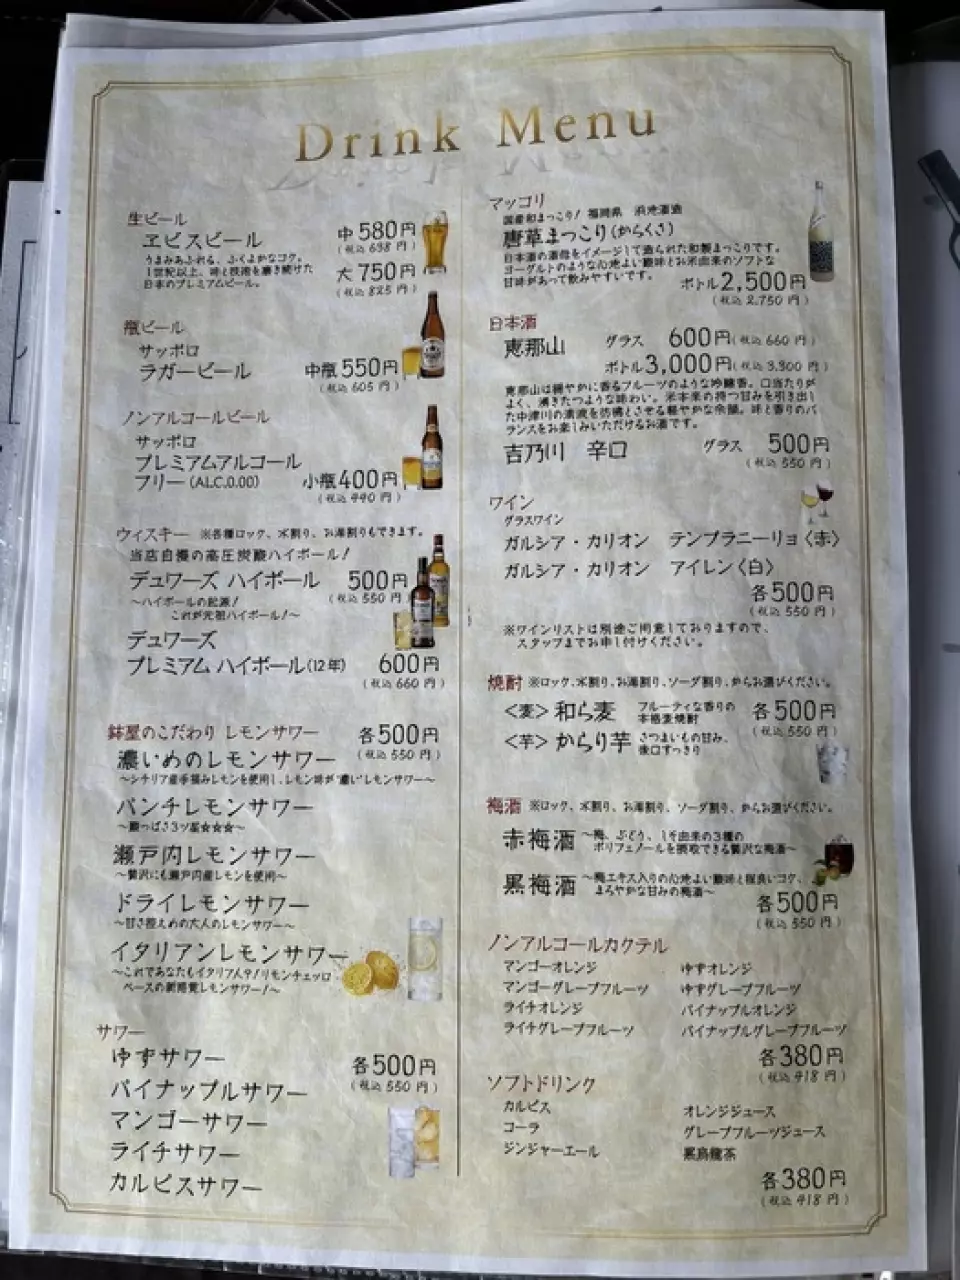 Drink Menu
生ビール
ヱビスビール
うまみあふれる、ふくよかなコク。
1世紀以上、味と技術を磨き続けた
日本のプレミアムビール。
中 580円
(税込 638 円)
大 750円
(税込 825 円)
瓶ビール
サッポロ
ラガービール
中瓶 550円
(税込 605 円)
ノンアルコールビール
サッポロ
プレミアムアルコール
フリー(ALC.0.00)
小瓶 400円
(税込 440 円)
ウィスキー ※各種ロック、水割り、お湯割りもできます。
当店自慢の高圧炭酸ハイボール!
デュワーズ ハイボール 500円
(税込 550 円)
~ハイボールの起源!
これが元祖ハイボール!~
デュワーズ
プレミアム ハイボール(12年) 600円
(税込 660 円)
鉢屋のこだわり レモンサワー 各500円
(税込 550 円)
濃いめのレモンサワー
~シチリア産手摘みレモンを使用し、レモン味が"濃い"レモンサワー~
パンチレモンサワー
~酸っぱさ3ツ星☆☆☆~
瀬戸内レモンサワー
~贅沢にも瀬戸内産レモンを使用~
ドライレモンサワー
~甘さ控えめの大人のレモンサワー~
イタリアンレモンサワー
~これであなたもイタリア人?!リモンチェッロ
ベースの新感覚レモンサワー!~
サワー
ゆずサワー
パイナップルサワー
マンゴーサワー
ライチサワー
カルピスサワー
各500円
(税込 550 円)
マッコリ
国産和まっこり! 福岡県 浜地酒造
唐草まっこり(からくさ)
日本酒の酒母をイメージして造られた和製まっこりです。
ヨーグルトのような心地よい酸味とお米由来のソフトな
甘味があって飲みやすいです。
ボトル 2,500円
(税込 2,750 円)
日本酒
恵那山 グラス 600円(税込 660 円)
ボトル 3,000円(税込 3,300 円)
恵那山は穏やかに香るフルーツのような吟醸香。口当たりが
よく、湧きたつような味わい。米本来の持つ甘みを引き出し
た中津川の清流を彷彿とさせる軽やかな余韻。味と香りのバ
ランスをお楽しみいただけるお酒です。
吉乃川 辛口 グラス 500円
(税込 550 円)
ワイン
グラスワイン
ガルシア・カリオン テンプラニーリョ〈赤〉
ガルシア・カリオン アイレン〈白〉
各500円
(税込 550 円)
※ワインリストは別途ご用意しておりますので、
スタッフまでお申し付けください。
焼酎 ※ロック、水割り、お湯割り、ソーダ割り、からお選びください。
〈麦〉和ら麦 フルーティな香りの
本格麦焼酎
〈芋〉からり芋 さつまいもの甘み、
後口すっきり
各500円
(税込 550 円)
梅酒 ※ロック、水割り、お湯割り、ソーダ割り、からお選びください。
赤梅酒 ~梅、ぶどう、しそ由来の3種の
ポリフェノールを摂取できる贅沢な梅酒~
黒梅酒 ~梅エキス入りの心地よい酸味と程良いコク、
まろやかな甘みの梅酒~
各500円
(税込 550 円)
ノンアルコールカクテル
マンゴーオレンジ ゆずオレンジ
マンゴーグレープフルーツ ゆずグレープフルーツ
ライチオレンジ パイナップルオレンジ
ライチグレープフルーツ パイナップルグレープフルーツ
各380円
(税込 418 円)
ソフトドリンク
カルピス オレンジジュース
コーラ グレープフルーツジュース
ジンジャーエール 黒烏龍茶
各380円
(税込 418 円)